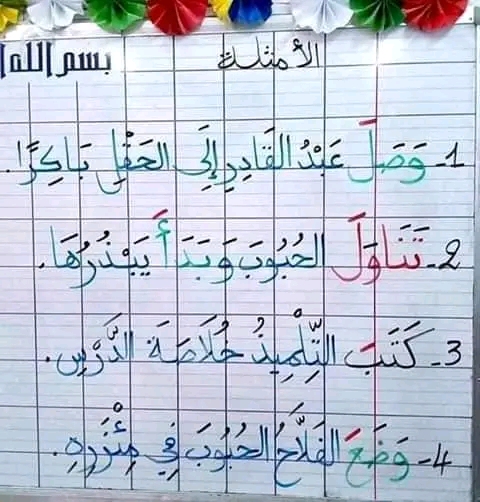 بسم الله ا
الأمثلة
1- وَصَلَ عَبْدُ القَادِرِ إِلَى الحَقْلِ بَاكِرًا.
2- تَنَاوَلَ الحُبُوبَ وَبَدَأَ يَبْذُرُهَا.
3- كَتَبَ التِّلْمِيذُ خُلَاصَةَ الدَّرْسِ.
4- وَضَعَ الفَلَّاحُ الحُبُوبَ فِي مِئْزَرِهِ.